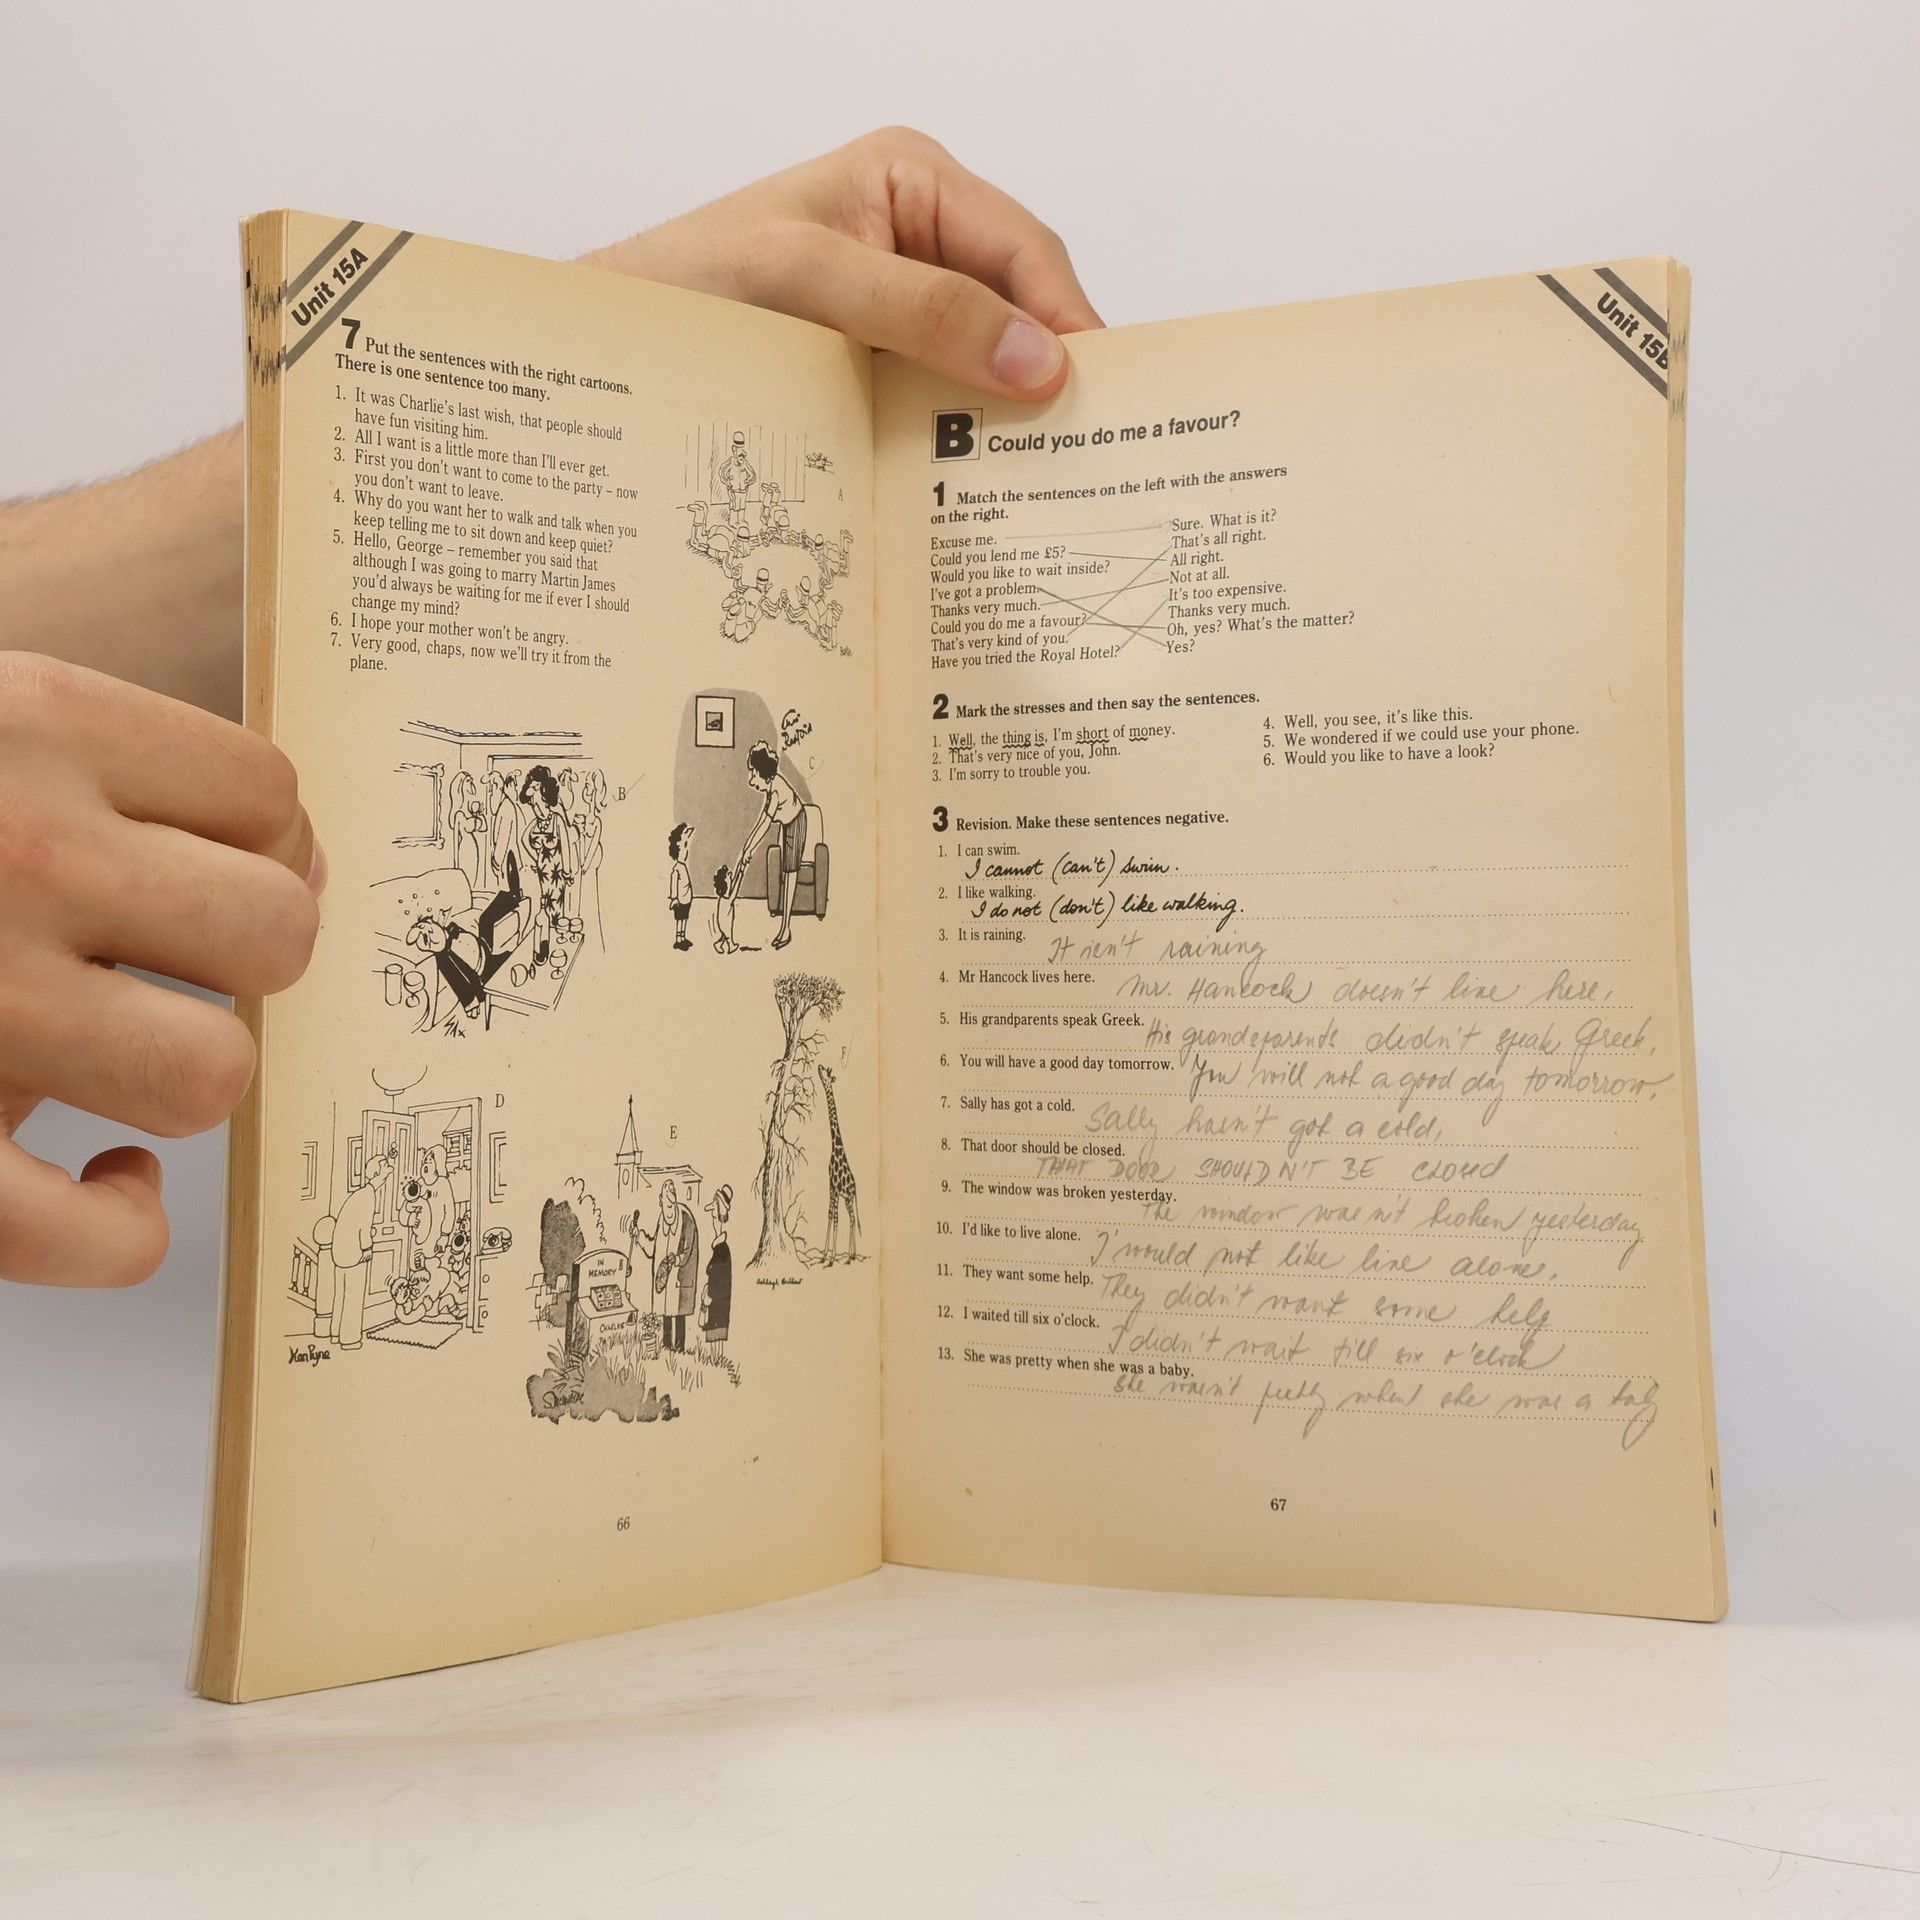 Unit 15A
7 Put the sentences with the right cartoons.
There is one sentence too many.
1. It was Charlie's last wish, that people should
have fun visiting him.
2. All I want is a little more than I'll ever get.
3. First you don't want to come to the party – now
you don't want to leave.
4. Why do you want her to walk and talk when you
keep telling me to sit down and keep quiet?
5. Hello, George – remember you said that
although I was going to marry Martin James
you'd always be waiting for me if ever I should
change my mind?
6. I hope your mother won't be angry.
7. Very good, chaps, now we'll try it from the
plane.
A
B
C
D
E
F
IN
MEMORY
CHARLIE
Ken Pyne
Ashleigh Brilliant
66
Unit 15B
B Could you do me a favour?
1 Match the sentences on the left with the answers
on the right.
Excuse me.
Could you lend me £5?
Would you like to wait inside?
I've got a problem.
Thanks very much.
Could you do me a favour?
That's very kind of you.
Have you tried the Royal Hotel?
Sure. What is it?
That's all right.
All right.
Not at all.
It's too expensive.
Thanks very much.
Oh, yes? What's the matter?
Yes?
2 Mark the stresses and then say the sentences.
1. Well, the thing is, I'm short of money.
2. That's very nice of you, John.
3. I'm sorry to trouble you.
4. Well, you see, it's like this.
5. We wondered if we could use your phone.
6. Would you like to have a look?
3 Revision. Make these sentences negative.
1. I can swim.
I cannot (can't) swim.
2. I like walking.
I do not (don't) like walking.
3. It is raining.
It isn't raining
4. Mr Hancock lives here.
Mr. Hancock doesn't live here.
5. His grandparents speak Greek.
His grandparents didn't speak Greek.
6. You will have a good day tomorrow.
You will not a good day tomorrow.
7. Sally has got a cold.
Sally hasn't got a cold.
8. That door should be closed.
THAT DOOR SHOULDN'T BE CLOSED
9. The window was broken yesterday.
The window wasn't broken yesterday
10. I'd like to live alone.
I would not like live alone.
11. They want some help.
They didn't want some help
12. I waited till six o'clock.
I didn't wait till six o'clock
13. She was pretty when she was a baby.
she wasn't pretty when she was a baby
67